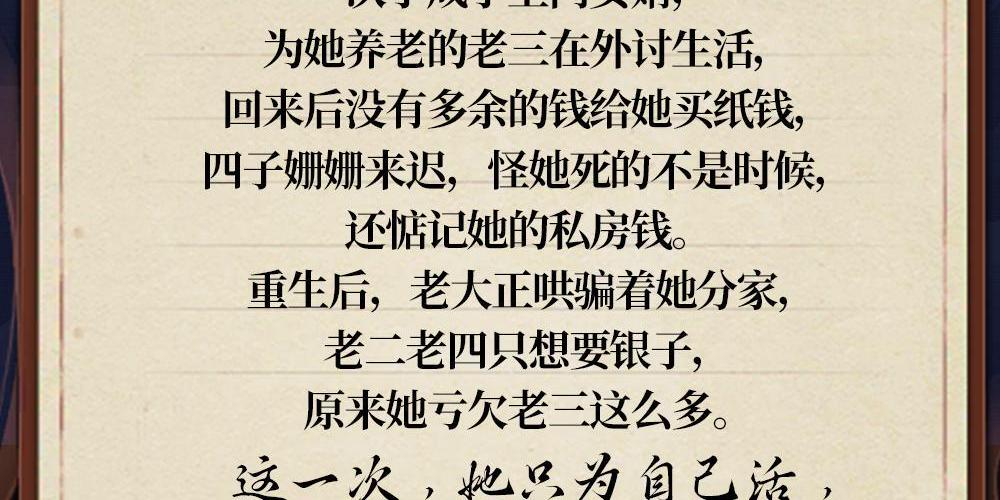 为她养老的老三在外讨生活,
回来后没有多余的钱给她买纸钱,
四子姗姗来迟，怪她死的不是时候,
还惦记她的私房钱。
重生后，老大正哄骗着她分家,
老二老四只想要银子,
原来她亏欠老三这么多。
这一次，她只为自己活，